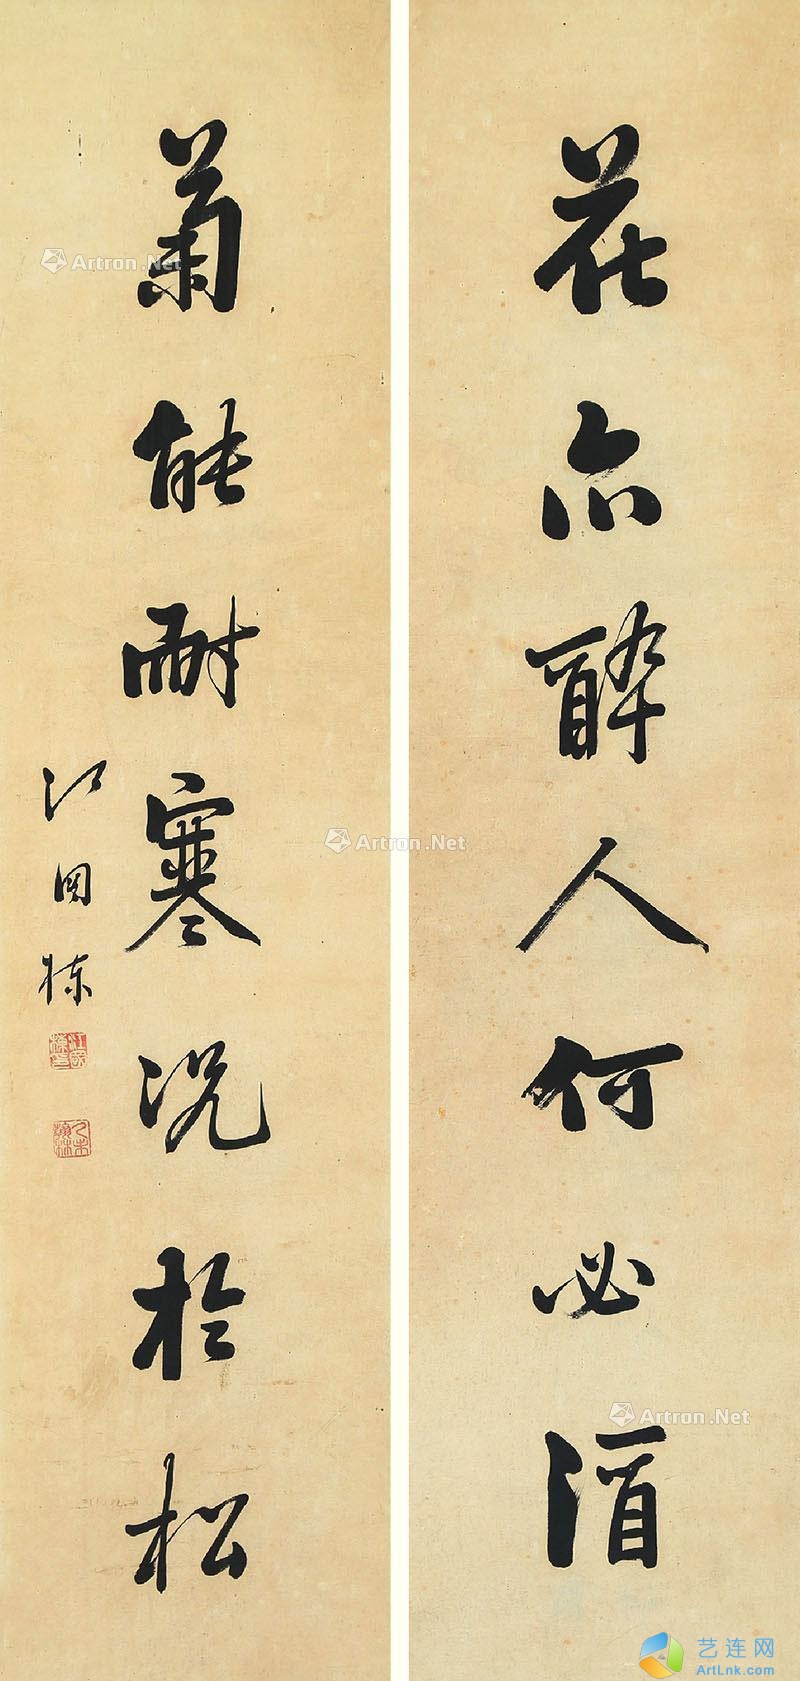 花亦醉人何必酒
菊能耐寒况於松
江国棟
Artron.Net
Artron.Net
Artron.Net
艺连网
ArtLnk.com